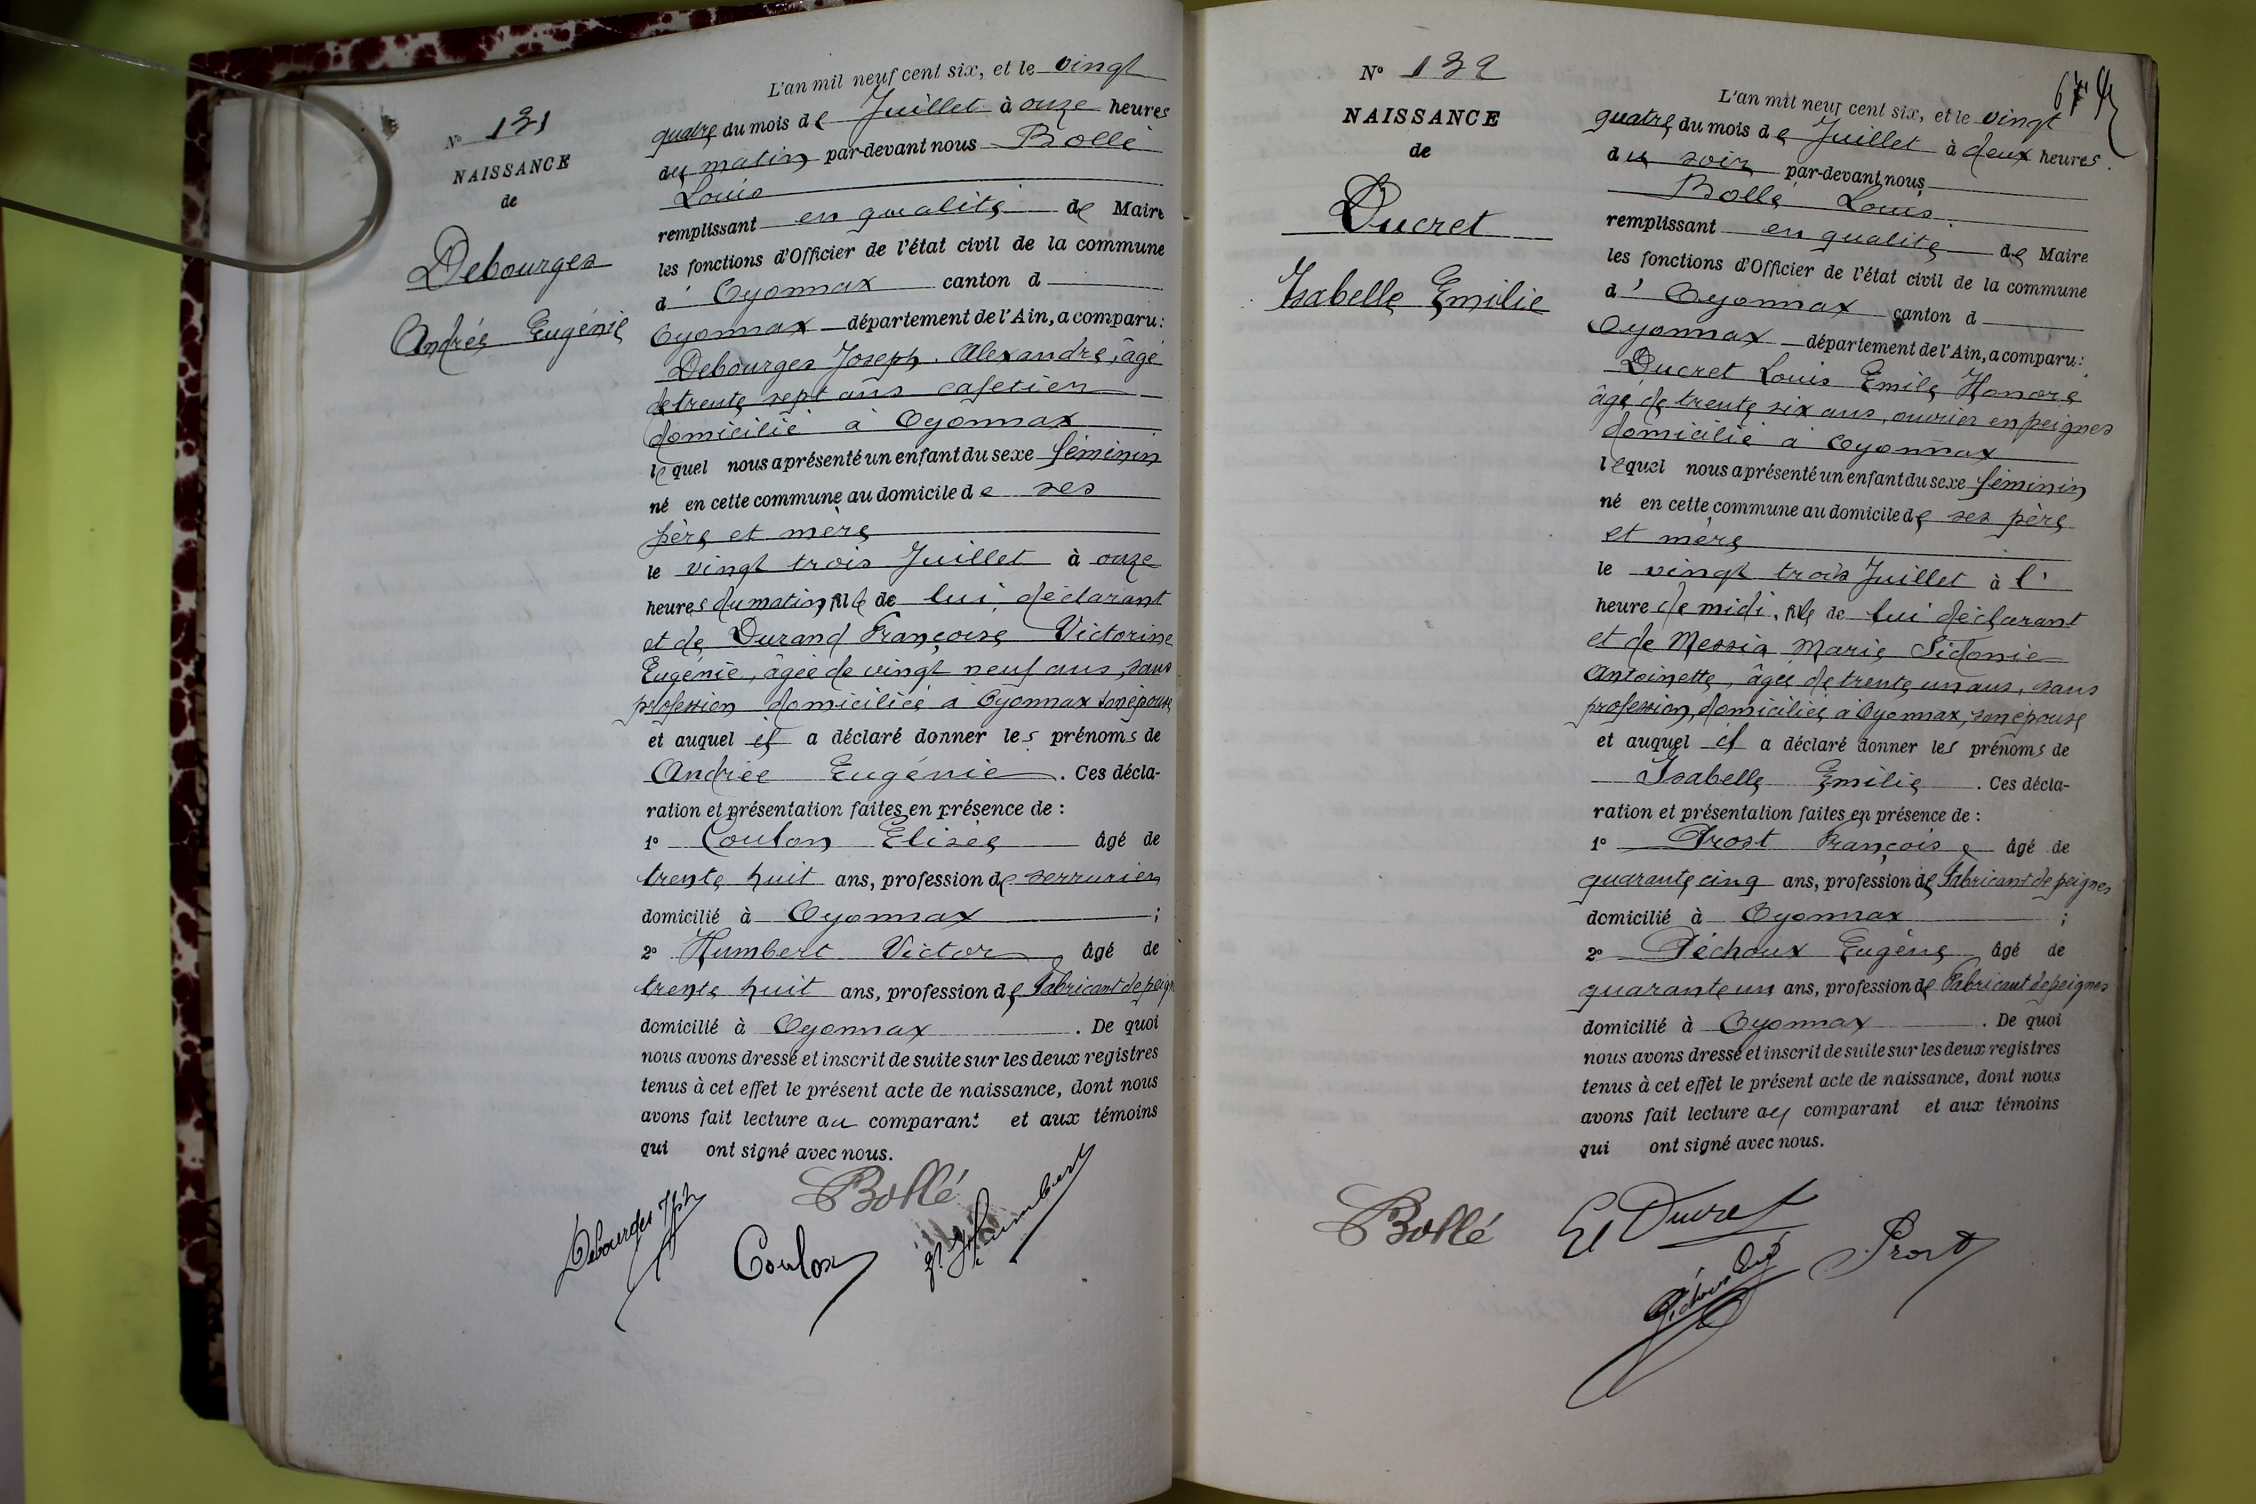 N° 131
NAISSANCE
de
Debourges
Andrée Eugénie
L'an mil neuf cent six, et le vingt
quatre du mois de Juillet à onze heures
du matin par-devant nous Bollé
Louis
remplissant en qualité de Maire
les fonctions d'Officier de l'état civil de la commune
d' Oyonnax canton d
Oyonnax département de l'Ain, a comparu:
Debourges Joseph Alexandre, âgé
de trente sept ans cafetier
domicilié à Oyonnax
lequel nous a présenté un enfant du sexe féminin
né en cette commune au domicile de ses
père et mère
le vingt trois Juillet à onze
heures du matin, fille de lui déclarant
et de Durand Françoise Victorine
Eugénie, âgée de vingt neuf ans, sans
profession domiciliée à Oyonnax son épouse
et auquel il a déclaré donner les prénoms de
Andrée Eugénie. Ces décla-
ration et présentation faites en présence de :
1° Coulon Elisée âgé de
trente huit ans, profession de serrurier
domicilié à Oyonnax ;
2° Humbert Victor, âgé de
trente huit ans, profession de fabricant de peign
domicilié à Oyonnax. De quoi
nous avons dressé et inscrit de suite sur les deux registres
tenus à cet effet le présent acte de naissance, dont nous
avons fait lecture au comparant et aux témoins
qui ont signé avec nous.
Bollé
Debourges Jph
Coulon
Humbert
67
N° 132
NAISSANCE
de
Ducret
Isabelle Emilie
L'an mil neuf cent six, et le vingt
quatre du mois de Juillet à deux heures
du soir par-devant nous
Bollé Louis
remplissant en qualité de Maire
les fonctions d'Officier de l'état civil de la commune
d' Oyonnax canton d
Oyonnax département de l'Ain, a comparu:
Ducret Louis Emile Honoré
âgé de trente six ans, ouvrier en peignes
domicilié à Oyonnax
lequel nous a présenté un enfant du sexe féminin
né en cette commune au domicile de ses père
et mère
le vingt trois Juillet à l'
heure de midi, fille de lui déclarant
et de Messia Marie Sidonie
Antoinette, âgée de trente un ans, sans
profession, domiciliée à Oyonnax, son épouse
et auquel il a déclaré donner les prénoms de
Isabelle Emilie. Ces décla-
ration et présentation faites en présence de :
1° Prost François, âgé de
quarante cinq ans, profession de fabricant de peignes
domicilié à Oyonnax ;
2° Péchoux Eugène âgé de
quarante un ans, profession de fabricant de peignes
domicilié à Oyonnax. De quoi
nous avons dressé et inscrit de suite sur les deux registres
tenus à cet effet le présent acte de naissance, dont nous
avons fait lecture au comparant et aux témoins
qui ont signé avec nous.
Bollé
Ducret
Prost
Péchoux